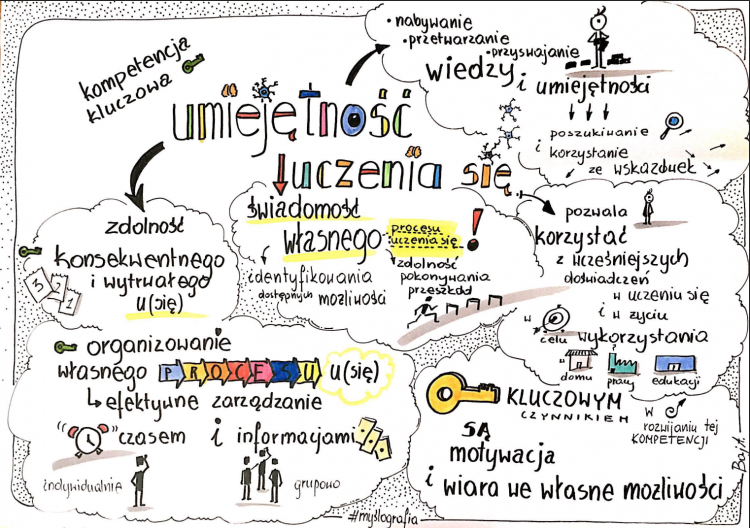 kompetencja
kluczowa
umiejętność
uczenia się
• nabywanie
• przetwarzanie
• przyswajanie
wiedzy i umiejętności
poszukiwanie
i korzystanie
ze wskazówek
zdolność
konsekwentnego
i wytrwałego
u(się)
3 2 1
świadomość
własnego procesu
uczenia się !
identyfikowania
dostępnych możliwości
zdolność
pokonywania
przeszkód
pozwala
korzystać
z wcześniejszych
doświadczeń
w uczeniu się
i w życiu
w celu wykorzystania
w
domu pracy edukacji
organizowanie
własnego PROCESU u(się)
efektywne zarządzanie
czasem i informacjami
indywidualnie grupowo
KLUCZOWYM
CZYNNIKIEM
w
rozwijaniu tej
KOMPETENCJI
SĄ
motywacja
i wiara we własne możliwości
#myslografia